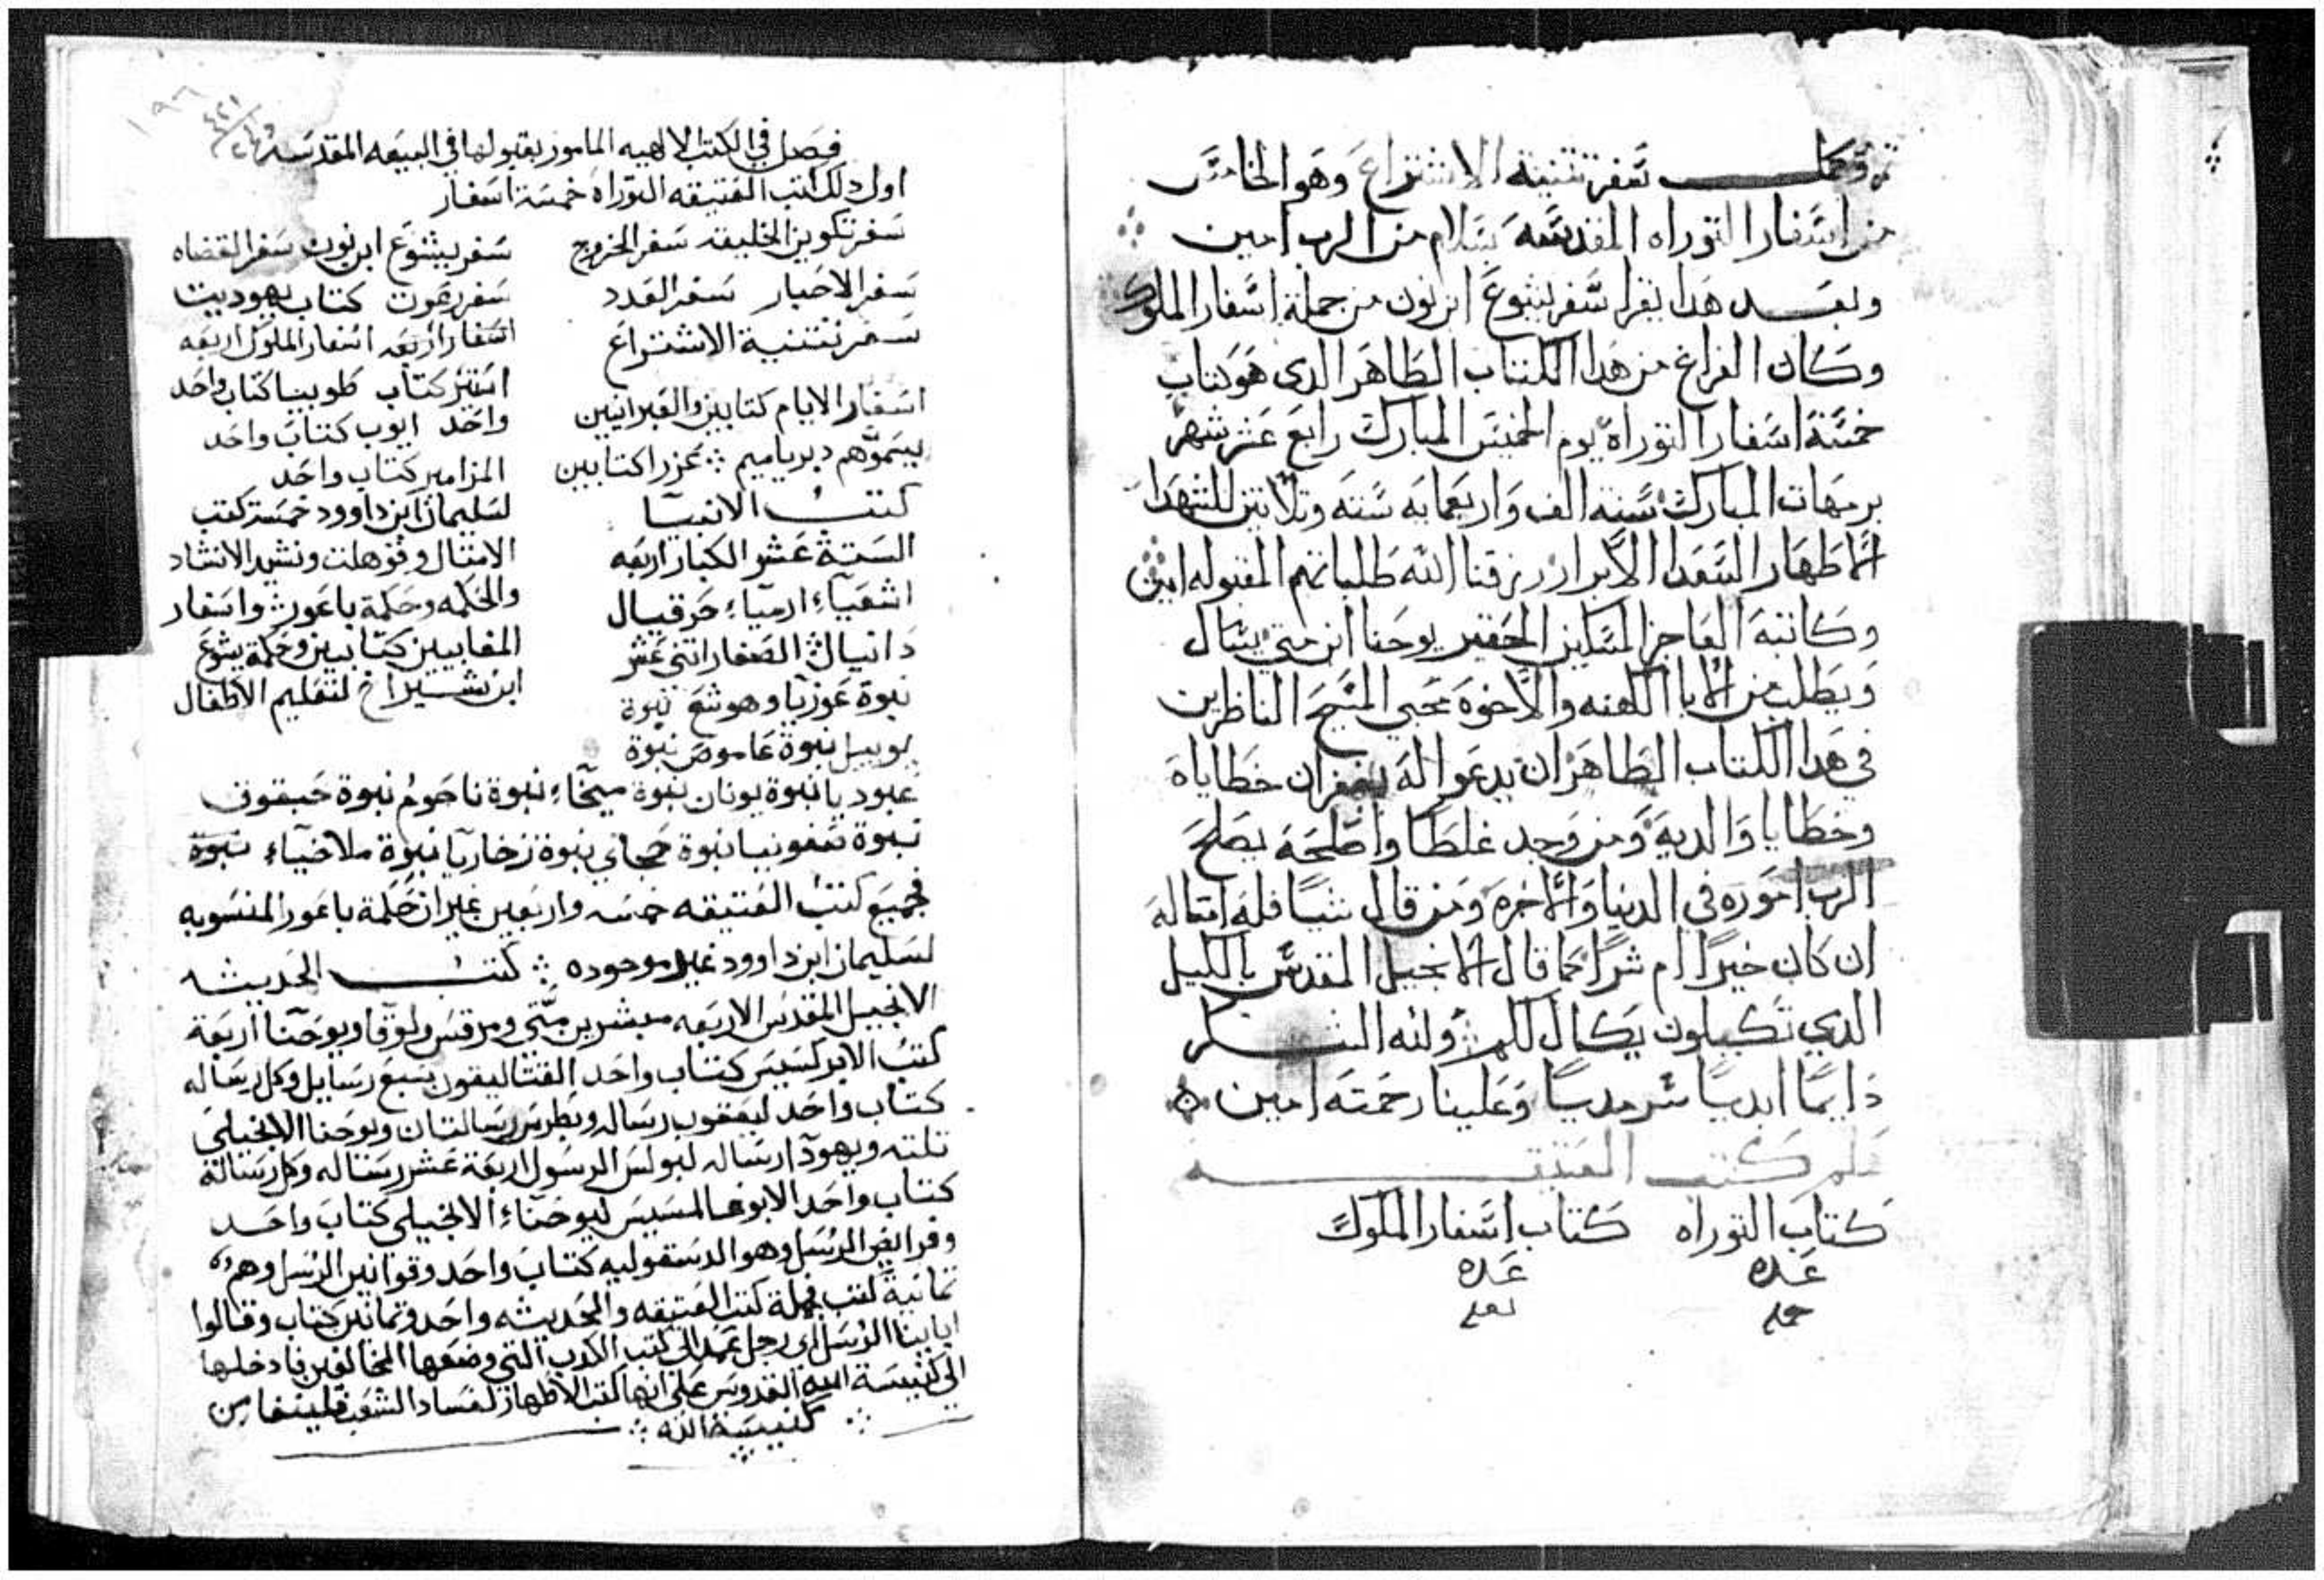 تم وكمل سفر تثنية الاشتراع وهو الخامس
من اسفار التوراه المقدسه بسلام من الرب امين
وبعد هدا يقرا سفر يشوع ابن نون من جملة اسفار الملوك
وكان الفراغ من هدا الكتاب الطاهر الدى هو كتاب
خمسة اسفار التوراة يوم الخميس المبارك رابع عشر شهر
برمهات المبارك سنة الف واربعمايه سته وتلاتين للشهدا
الاطهار السعدا الابرار رزقنا الله طلباتهم المقبوله امين
وكاتبه العاجز المسكين الحقير يوحنا ابن متي يسال
ويطلب من الابا الكهنه والاخوه محبي المسيح الناظرين
في هدا الكتاب الطاهر ان يدعوا له بغفران خطاياه
وخطايا والديه ومن وجد غلطا واصلحه يصلح
الرب اموره في الدنيا والاخره ومن قال شيا فله امتاله
ان كان خيرا ام شرا كما قال الانجيل المقدس بالكيل
الدي تكيلون يكال لكم ولله الشكر
دايما ابديا سرمديا وعلينا رحمته امين
كتب العتيقه
كتاب التوراه كتاب اسفار الملوك
عده عده
فصل في الكتب الالهيه المامور بقبولها في البيعه المقدسه
اول دلك كتب العتيقه التوراة خمسة اسفار
سفر تكوين الخليقه سفر الخروج
سفر الاحبار سفر العدد
سفر تثنية الاشتراع
اسفار الايام كتابين والعبرانيين
يسموهم دبرياميم عزرا كتابين
كتب الانبيا
الستة عشر الكبار اربعه
اشعياء ارمياء حزقيال
دانيال الصغار اتني عشر
نبوة عوزيا وهوشع نبوة
يوييل نبوة عاموص نبوة
سفر يشوع ابن نون سفر القضاه
سفر رعوت كتاب يهوديت
اسفار اربعه اسفار الملوك اربعه
استير كتاب طوبيا كتاب واحد
واحد ايوب كتاب واحد
المزامير كتاب واحد
لسليمان ابن داوود خمسة كتب
الامتال وقوهلت ونشيد الانشاد
والحكمه وحكمة باغور واسفار
المقابيين كتابين وحكمة يشوع
ابن شيراخ لتعليم الاطفال
عبوديا نبوة يونان نبوة ميخاء نبوة ناحوم نبوة حبقوق
نبوة صفونيا نبوة حجاي نبوة زخاريا نبوة ملاخياء نبوة
فجميع كتب العتيقه خمسه واربعين غير ان حكمة باغور المنسوبه
لسليمان ابن داوود غير موجوده كتب الحديثه
الانجيل المقدس الاربعه مبشرين متي ومرقس ولوقا ويوحنا اربعة
كتب الابركسيس كتاب واحد القتاليقون سبع رسايل وكل رساله
كتاب واحد ليعقوب رساله وبطرس رسالتان ويوحنا الانجيلي
تلته ويهودا رساله لبولس الرسول اربعة عشر رساله وكل رسالة
كتاب واحد الابوغالمسيس ليوحناء الانجيلي كتاب واحد
وفرايض الرسل وهو الدسقوليه كتاب واحد وقوانين الرسل وهم
تمانية كتب فجملة كتب العتيقه والحديثه واحد وتمانين كتاب وقالوا
ابايينا الرسل اي رجل عمد الى كتب الكدب التي وضعها المخالفين فادخلها
الى كنيسة الله القدوس على انها كتب الاطهار لفساد الشعب فلينفا من
كنيسة الله